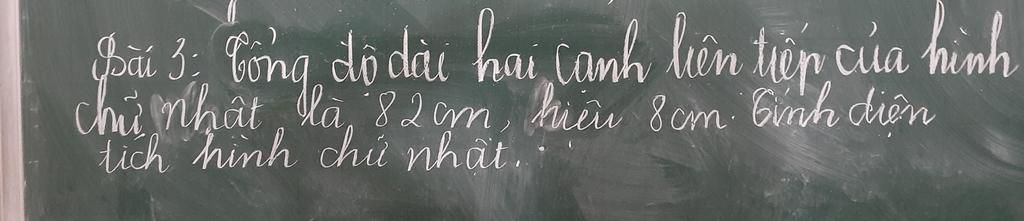 Bài 3: Tổng độ dài hai cạnh liên tiếp của hình
chữ nhật là 82cm, hiệu 8cm. Tính diện
tích hình chữ nhật.